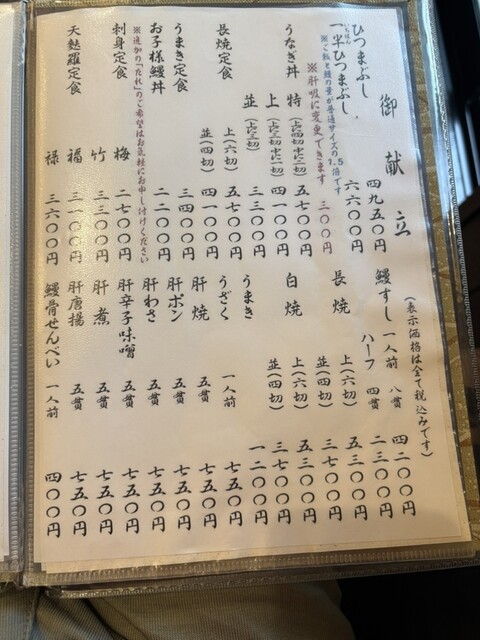 御献立
ひつまぶし 四九五〇円
一半ひつまぶし 六六〇〇円
いちはん
※ご飯と鰻の量が普通サイズの1.5倍です
※肝吸に変更できます 三〇〇円
うなぎ丼 特(上に四切中に一切) 五七〇〇円
上(上に三切中に一切) 四一〇〇円
並(上に三切) 三三〇〇円
長焼定食 上(六切) 五七〇〇円
並(四切) 四一〇〇円
うまき定食 三四〇〇円
お子様鰻丼 二二〇〇円
※追加の「たれ」のご希望はお気軽にお申し付けください
刺身定食 梅 二七〇〇円
竹 三三〇〇円
天麩羅定食 福 三一〇〇円
禄 三六〇〇円
(表示価格は全て税込みです)
鰻すし 一人前 八貫 四二〇〇円
ハーフ 四貫 二三〇〇円
長焼 上(六切) 五三〇〇円
並(四切) 三七〇〇円
白焼 上(六切) 五三〇〇円
並(四切) 三七〇〇円
うまき 一二〇〇円
うざく 一人前 七五〇円
肝焼 五貫 七五〇円
肝ポン 五貫 七五〇円
肝わさ 五貫 七五〇円
肝辛子味噌 五貫 七五〇円
肝煮 五貫 七五〇円
肝唐揚 五貫 七五〇円
鰻骨せんべい 一人前 四〇〇円